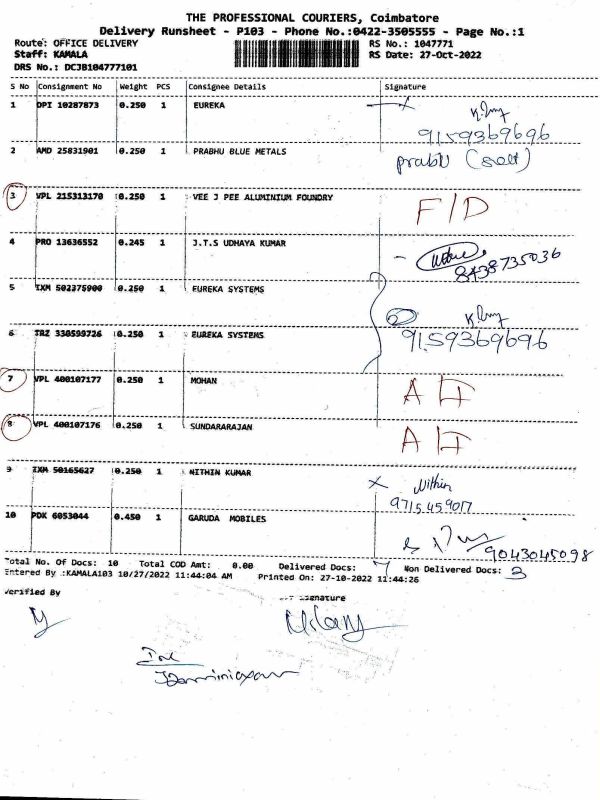 THE PROFESSIONAL COURIERS, Coimbatore
Delivery Runsheet - P103 - Phone No.:0422-3505555 - Page No.:1
Route: OFFICE DELIVERY RS No.: 1047771
Staff: KAMALA RS Date: 27-Oct-2022
DRS No.: DCJB104777101
S No Consignment No Weight PCS Consignee Details Signature
1 DPI 10287873 0.250 1 EUREKA
9159369696
2 AMD 25831901 0.250 1 PRABHU BLUE METALS
3 VPL 215313170 0.250 1 VEE J PEE ALUMINIUM FOUNDRY F/D
4 PRO 13636552 0.245 1 J.T.S UDHAYA KUMAR
8438735036
5 IXM 502375900 0.250 1 EUREKA SYSTEMS
6 TRZ 330599726 0.250 1 EUREKA SYSTEMS 9159369696
7 VPL 400107177 0.250 1 MOHAN
8 VPL 400107176 0.250 1 SUNDARARAJAN
9 IXM 50165627 0.250 1 NITHIN KUMAR Nithin
9715459017
10 PDK 6053044 0.450 1 GARUDA MOBILES
9043045098
Total No. Of Docs: 10 Total COD Amt: 0.00 Delivered Docs: 7 Non Delivered Docs: 3
Entered By :KAMALA103 10/27/2022 11:44:04 AM Printed On: 27-10-2022 11:44:26
Verified By Signature